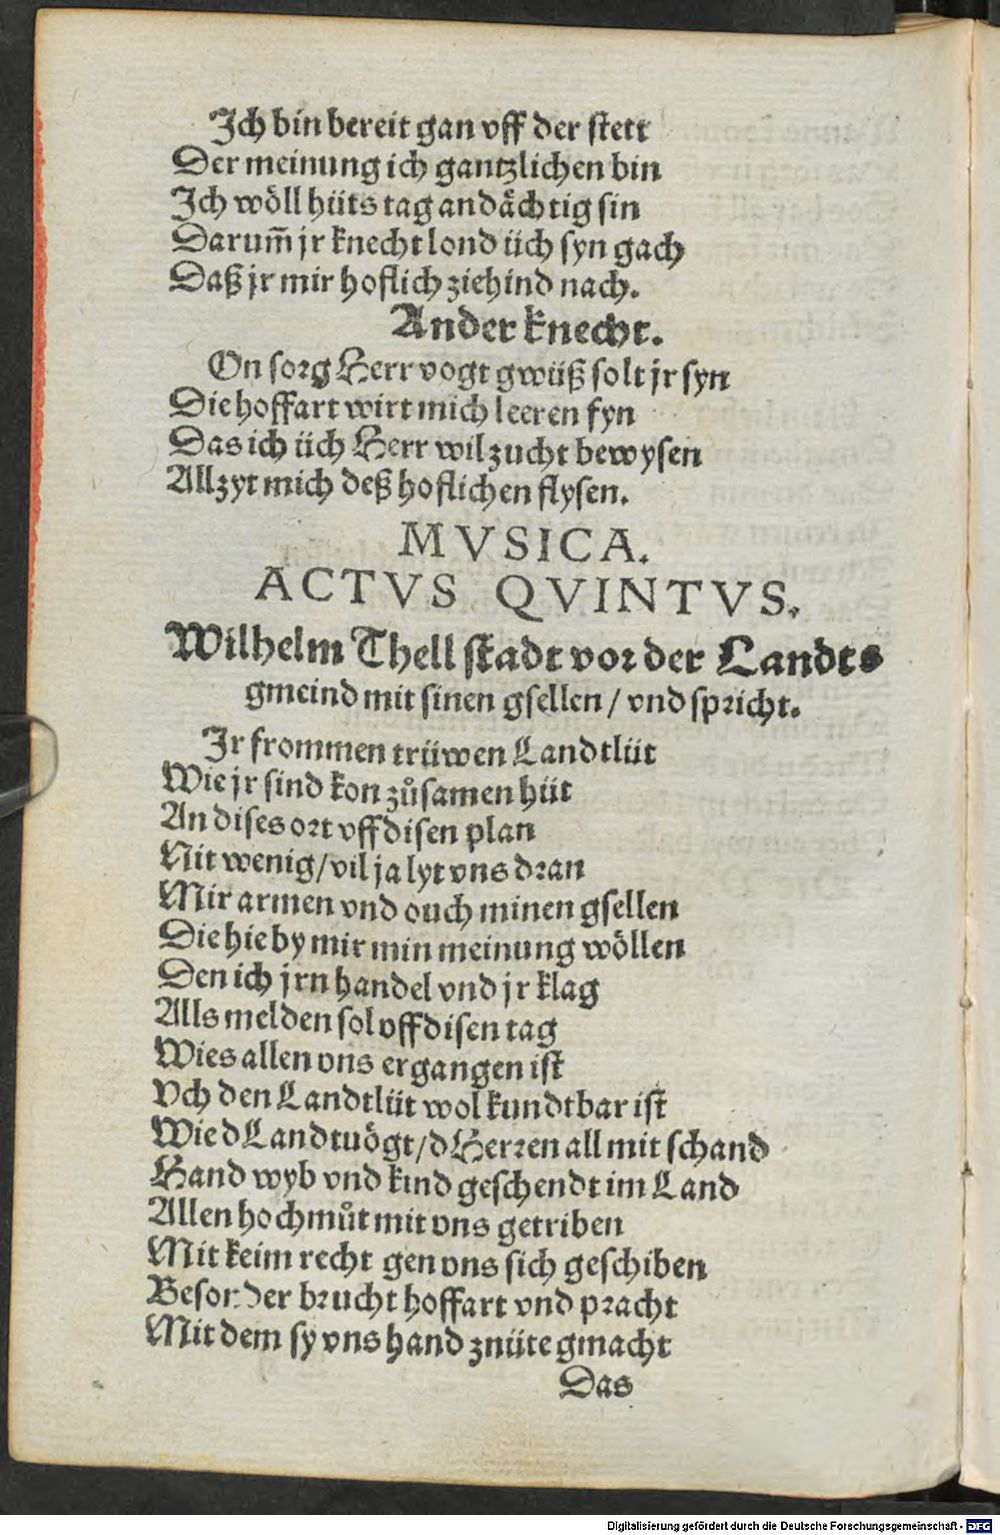 Ich bin bereit gan vff der stett
Der meinung ich gantzlichen bin
Ich wöll hüts tag andächtig sin
Darum̄ jr knecht lond üch syn gach
Daß jr mir hoflich ziehind nach.
Ander knecht.
On sorg Herr vogt gwüß solt jr syn
Die hoffart wirt mich leeren fyn
Das ich üch Herr wil zucht bewysen
Allzyt mich deß hoflichen flysen.
MVSICA.
ACTVS QVINTVS.
Wilhelm Thell stadt vor der Landts
gmeind mit sinen gsellen / vnd spricht.
Ir frommen trüwen Landtlüt
Wie jr sind kon zůsamen hüt
An dises ort vff disen plan
Nit wenig / vil ja lyt vns dran
Mir armen vnd ouch minen gsellen
Die hie by mir min meinung wöllen
Den ich jrn handel vnd jr klag
Alls melden sol vff disen tag
Wies allen vns ergangen ist
Vch den Landtlüt wol kundtbar ist
Wie d Landtuögt / d Herren all mit schand
Hand wyb vnd kind geschendt im Land
Allen hochmůt mit vns getriben
Mit keim recht gen vns sich geschiben
Besonder brucht hoffart vnd pracht
Mit dem sy vns hand znüte gmacht
Das
Digitalisierung gefördert durch die Deutsche Forschungsgemeinschaft - DFG